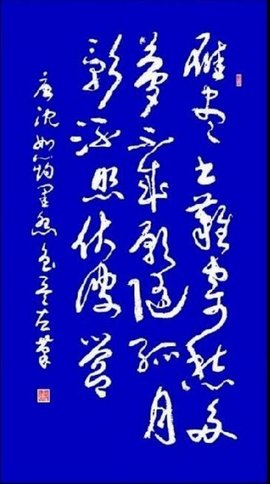 雁尽书难寄愁多
梦不成愿随孤月
影流照伏波营
唐沈如筠闺怨